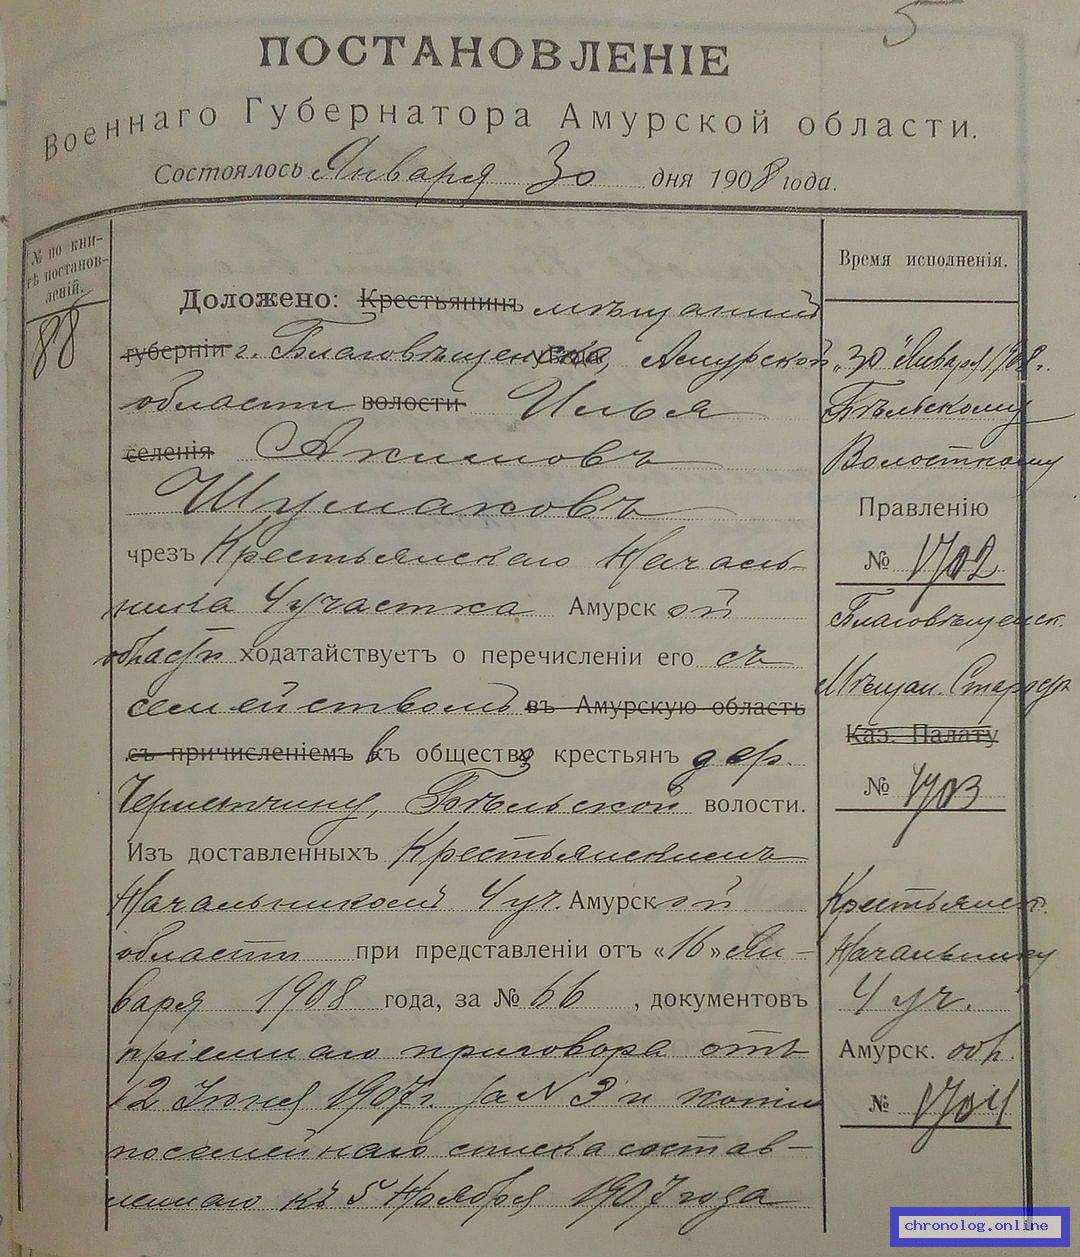 5
ПОСТАНОВЛЕНІЕ
Военнаго Губернатора Амурской области.
Состоялось Января 30 дня 1908 года.
№ по кни-
гѣ постанов-
леній.
88
Доложено: Крестьянинъ мѣщанинъ
губерніи г. Благовѣщенска, уѣзда Амурской
области волости Илья
селенія Акимовъ
Шумаковъ
чрезъ Крестьянскаго Началь-
ника 4 участка Амурской
области ходатайствуетъ о перечисленіи его съ
семействомъ въ Амурскую область
съ причисленіемъ въ общество крестьянъ дер.
Черемчину, Бѣльской волости.
Изъ доставленныхъ Крестьянскимъ
Начальникомъ 4 уч. Амурской
области при представленіи отъ «16» Ян-
варя 1908 года, за № 66, документовъ
пріемнаго приговора отъ
12 Іюня 1907 г. за N 3 и копіи
посемейнаго списка состав-
леннаго къ 5 Ноября 1907 года
Время исполненія.
„30" Января 1908 г.
Бѣльскому
Волостному
Правленію
№ 1702
Благовѣщенск.
Мѣщан. Старостѣ
Каз. Палату
№ 1703
Крестьянск.
Начальнику
4 уч.
Амурск. обл.
№ 1704
chronolog.online